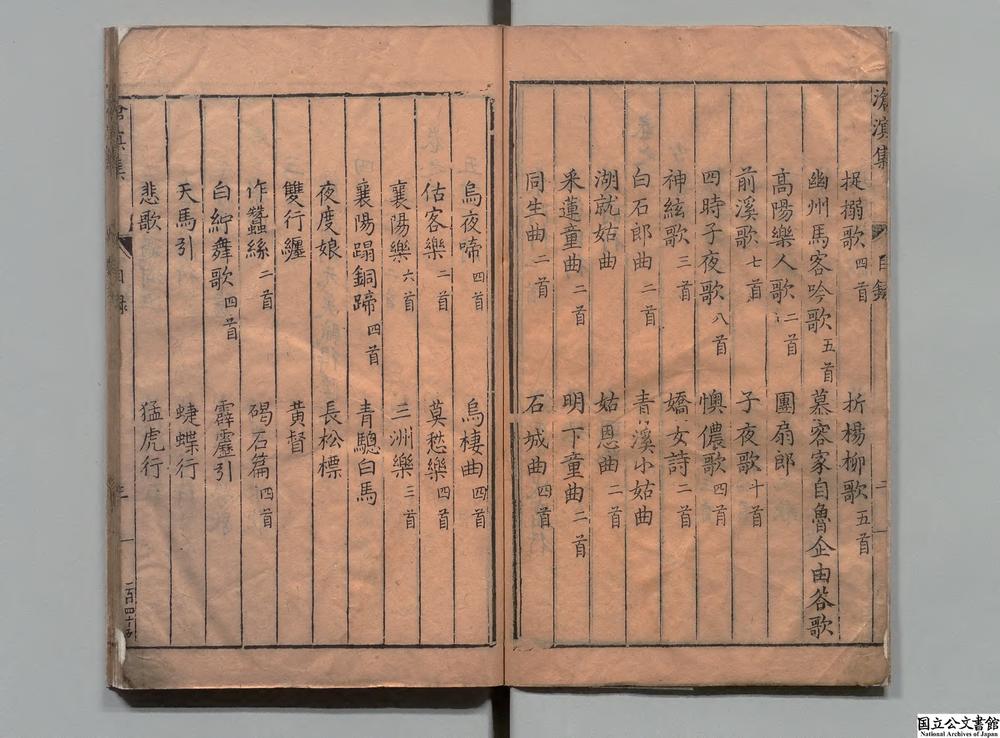 滄溟集
目録
二
捉搦歌四首 折楊柳歌五首
幽州馬客吟歌五首 慕容家自魯企由谷歌
高陽樂人歌二首 團扇郎
前溪歌七首 子夜歌十首
四時子夜歌八首 懊儂歌四首
神絃歌三首 嬌女詩二首
白石郎曲二首 青溪小姑曲
湖就姑曲 姑恩曲二首
采蓮童曲二首 明下童曲二首
同生曲二首 石城曲四首
烏夜啼四首 烏棲曲四首
估客樂二首 莫愁樂四首
襄陽樂六首 三洲樂三首
襄陽蹋銅蹄四首 青驄白馬
夜度娘 長松標
雙行纏 黃督
作蠶絲二首 碣石篇四首
白紵舞歌四首 霹靂引
天馬引 蜨蝶行
悲歌 猛虎行
滄溟集
目録
三
国立公文書館
National Archives of Japan